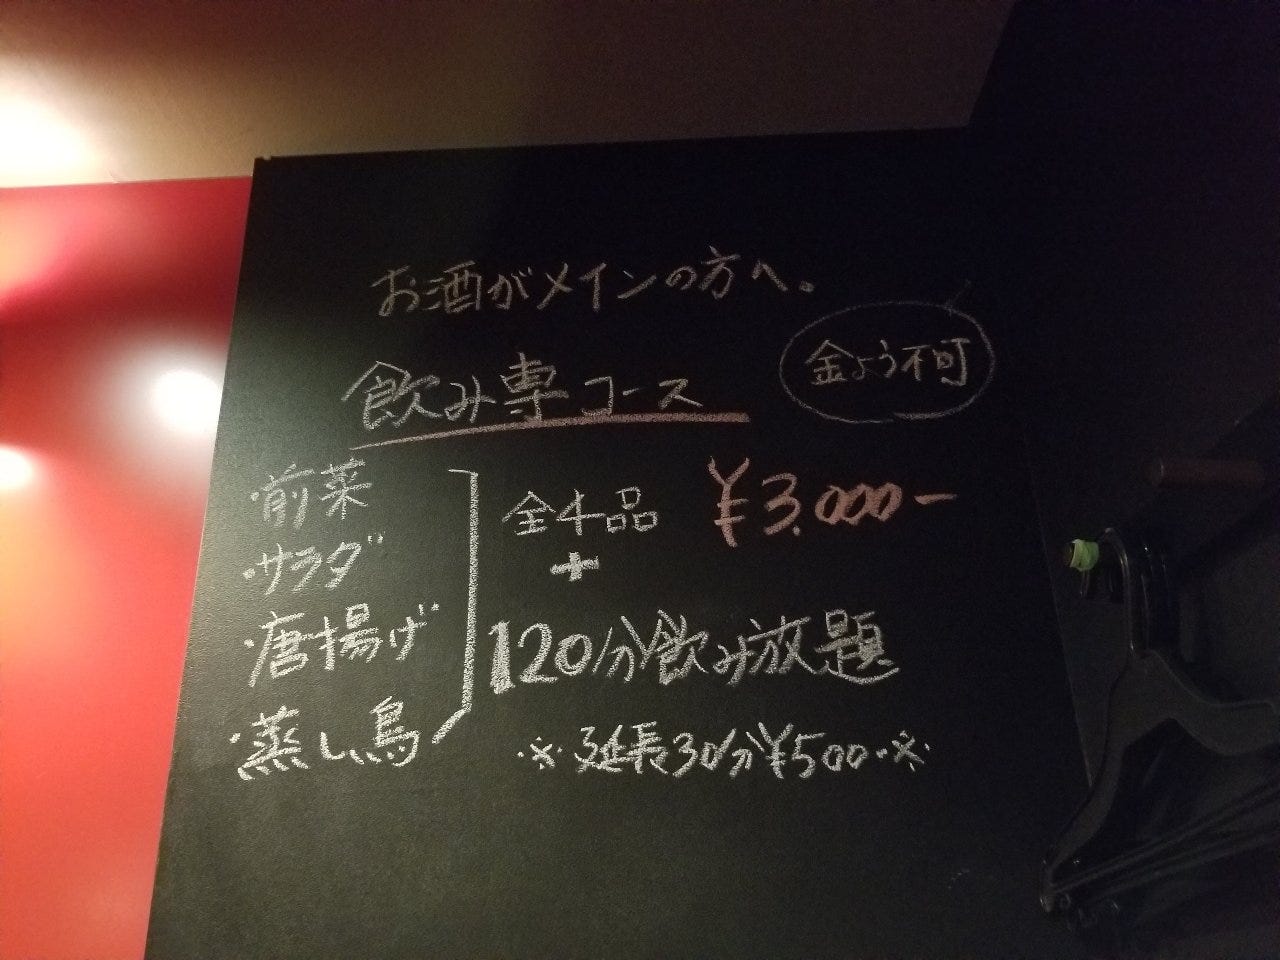 お酒がメインの方へ。
金よう不可
飲み専コース
・前菜
・サラダ
・唐揚げ
・蒸し鳥
全4品 ¥3.000-
+
120分飲み放題
※延長30分¥500-※